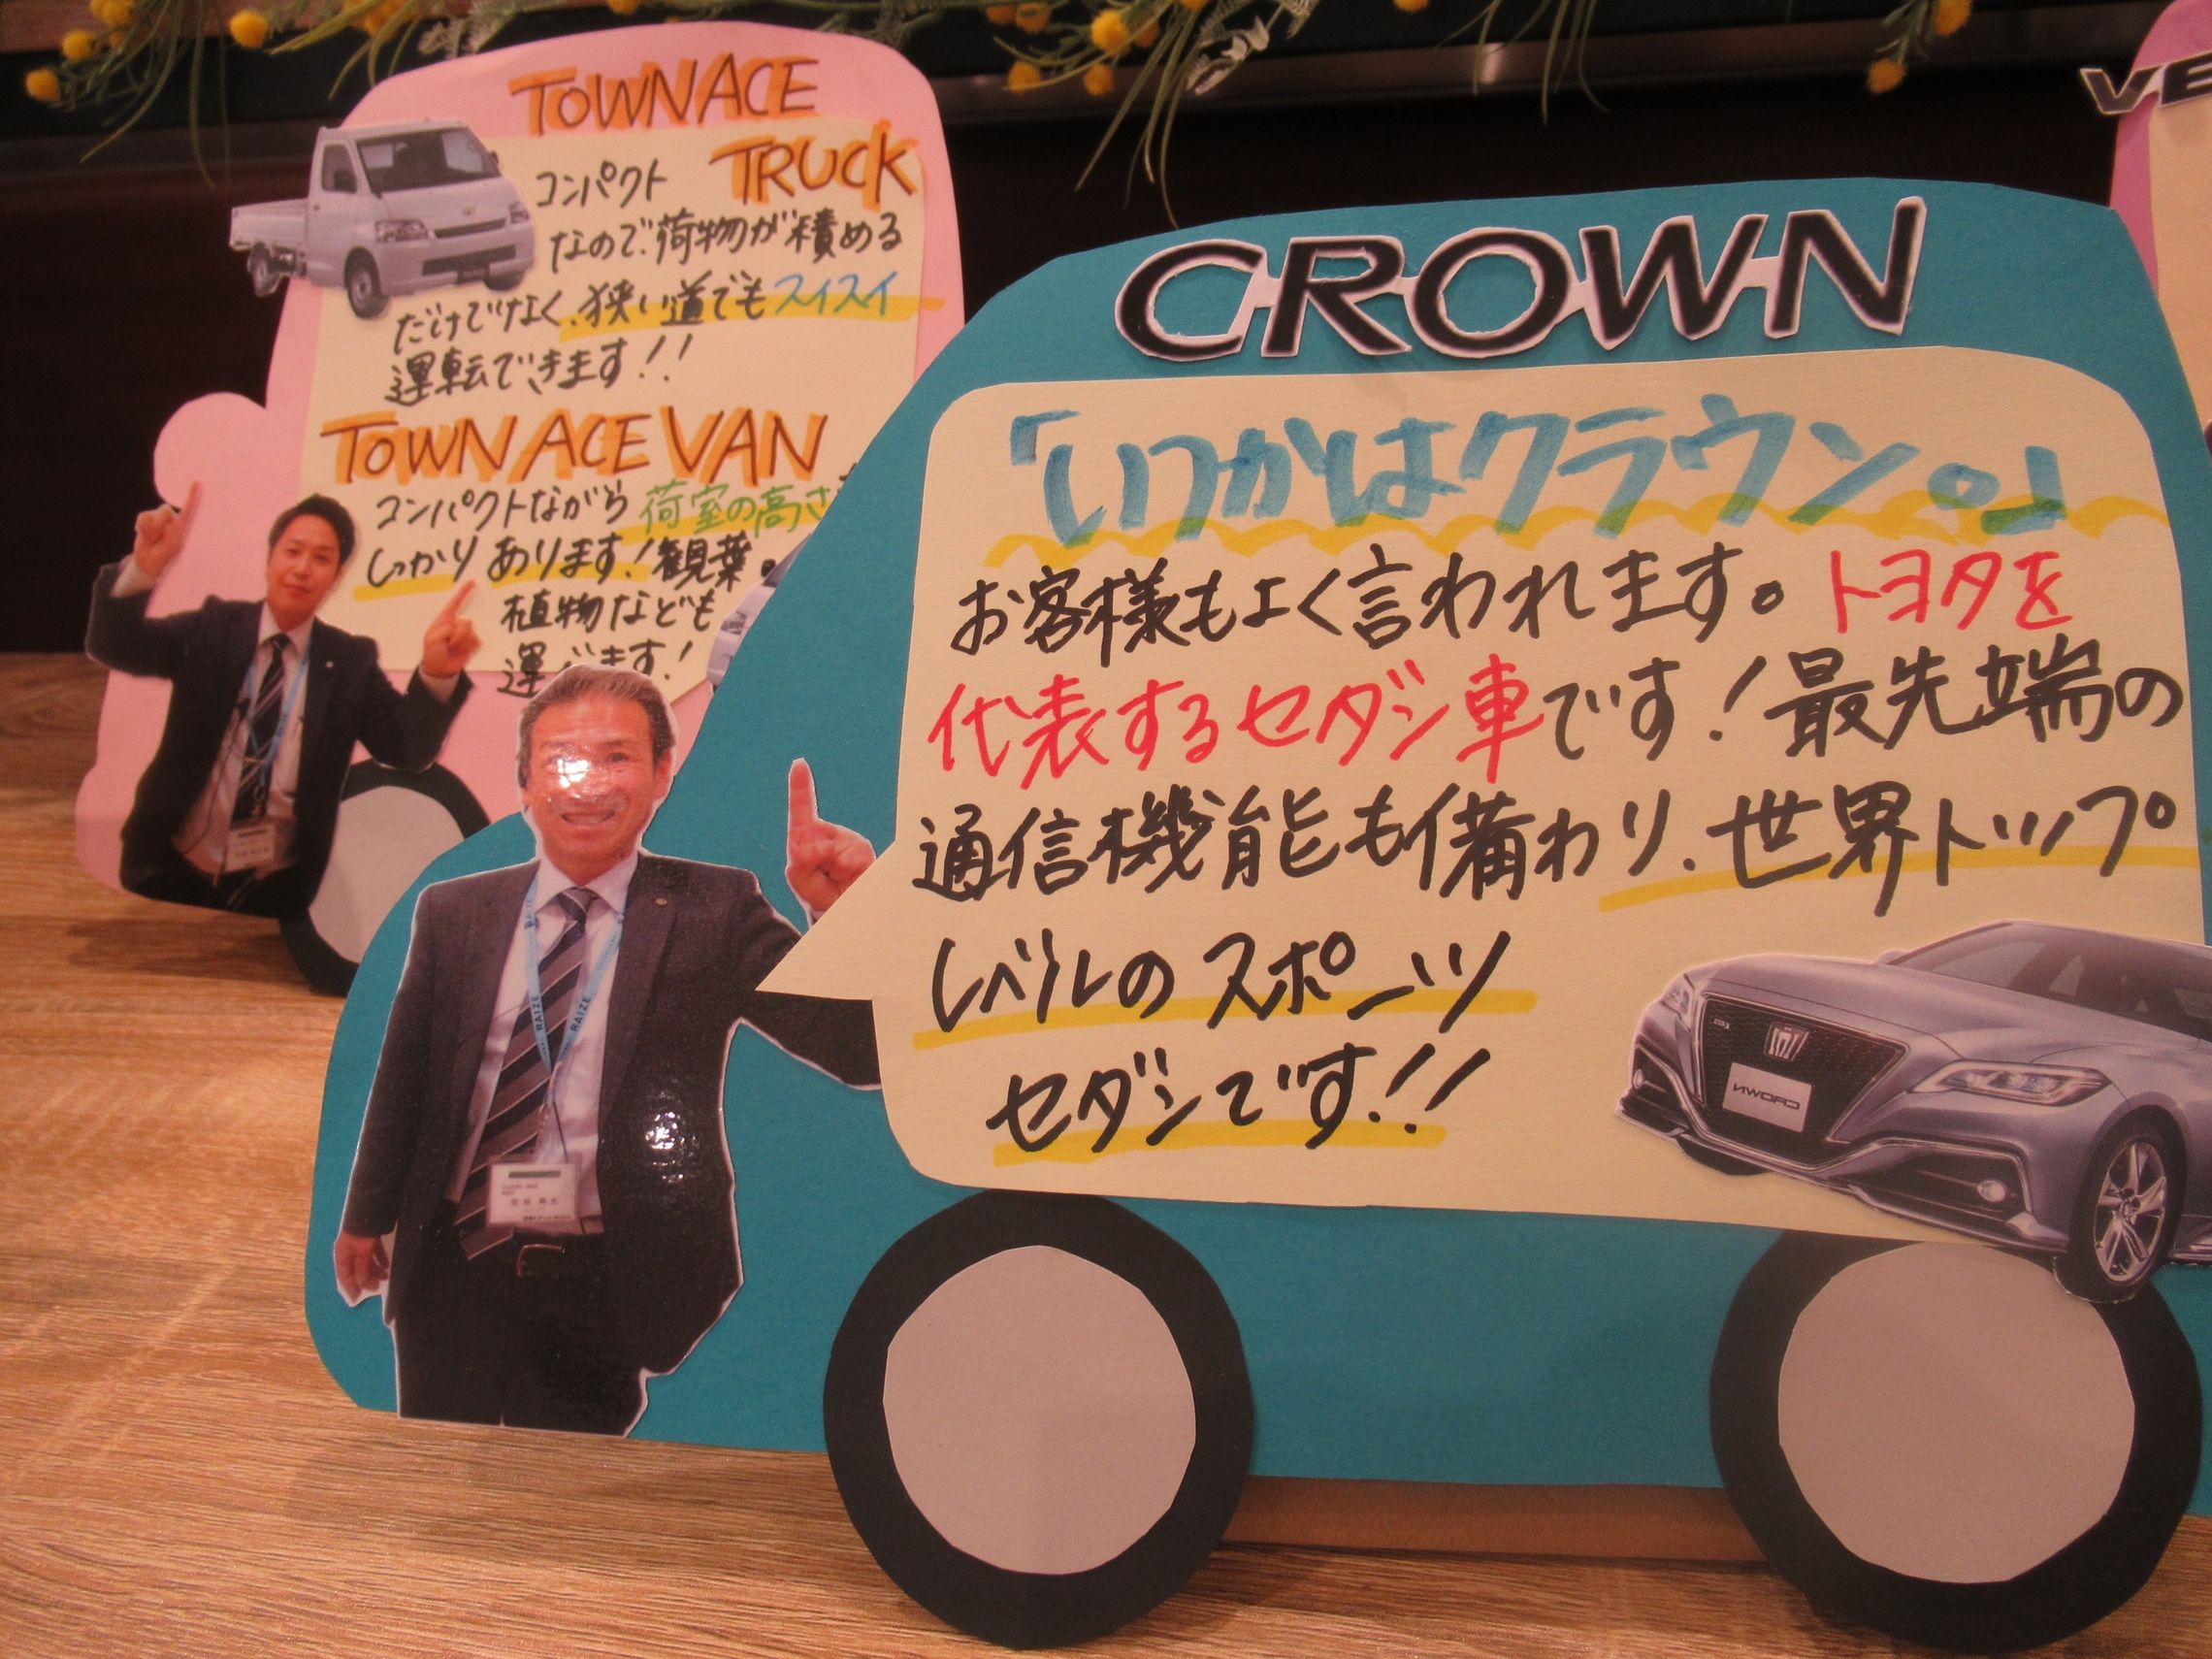 TOWN ACE
TRUCK
コンパクト
なので、荷物が積める
だけでなく、狭い道でもスイスイ
運転できます!!
TOWN ACE VAN
コンパクトながら荷室の高さ
しっかりあります!観葉
植物なども
運べます!
CROWN
「いつかはクラウン。」
お客様もよく言われます。トヨタを
代表するセダン車です!最先端の
通信機能も備わり、世界トップ
レベルのスポーツ
セダンです!!
RAIZE
RAIZE
CROWN
VE